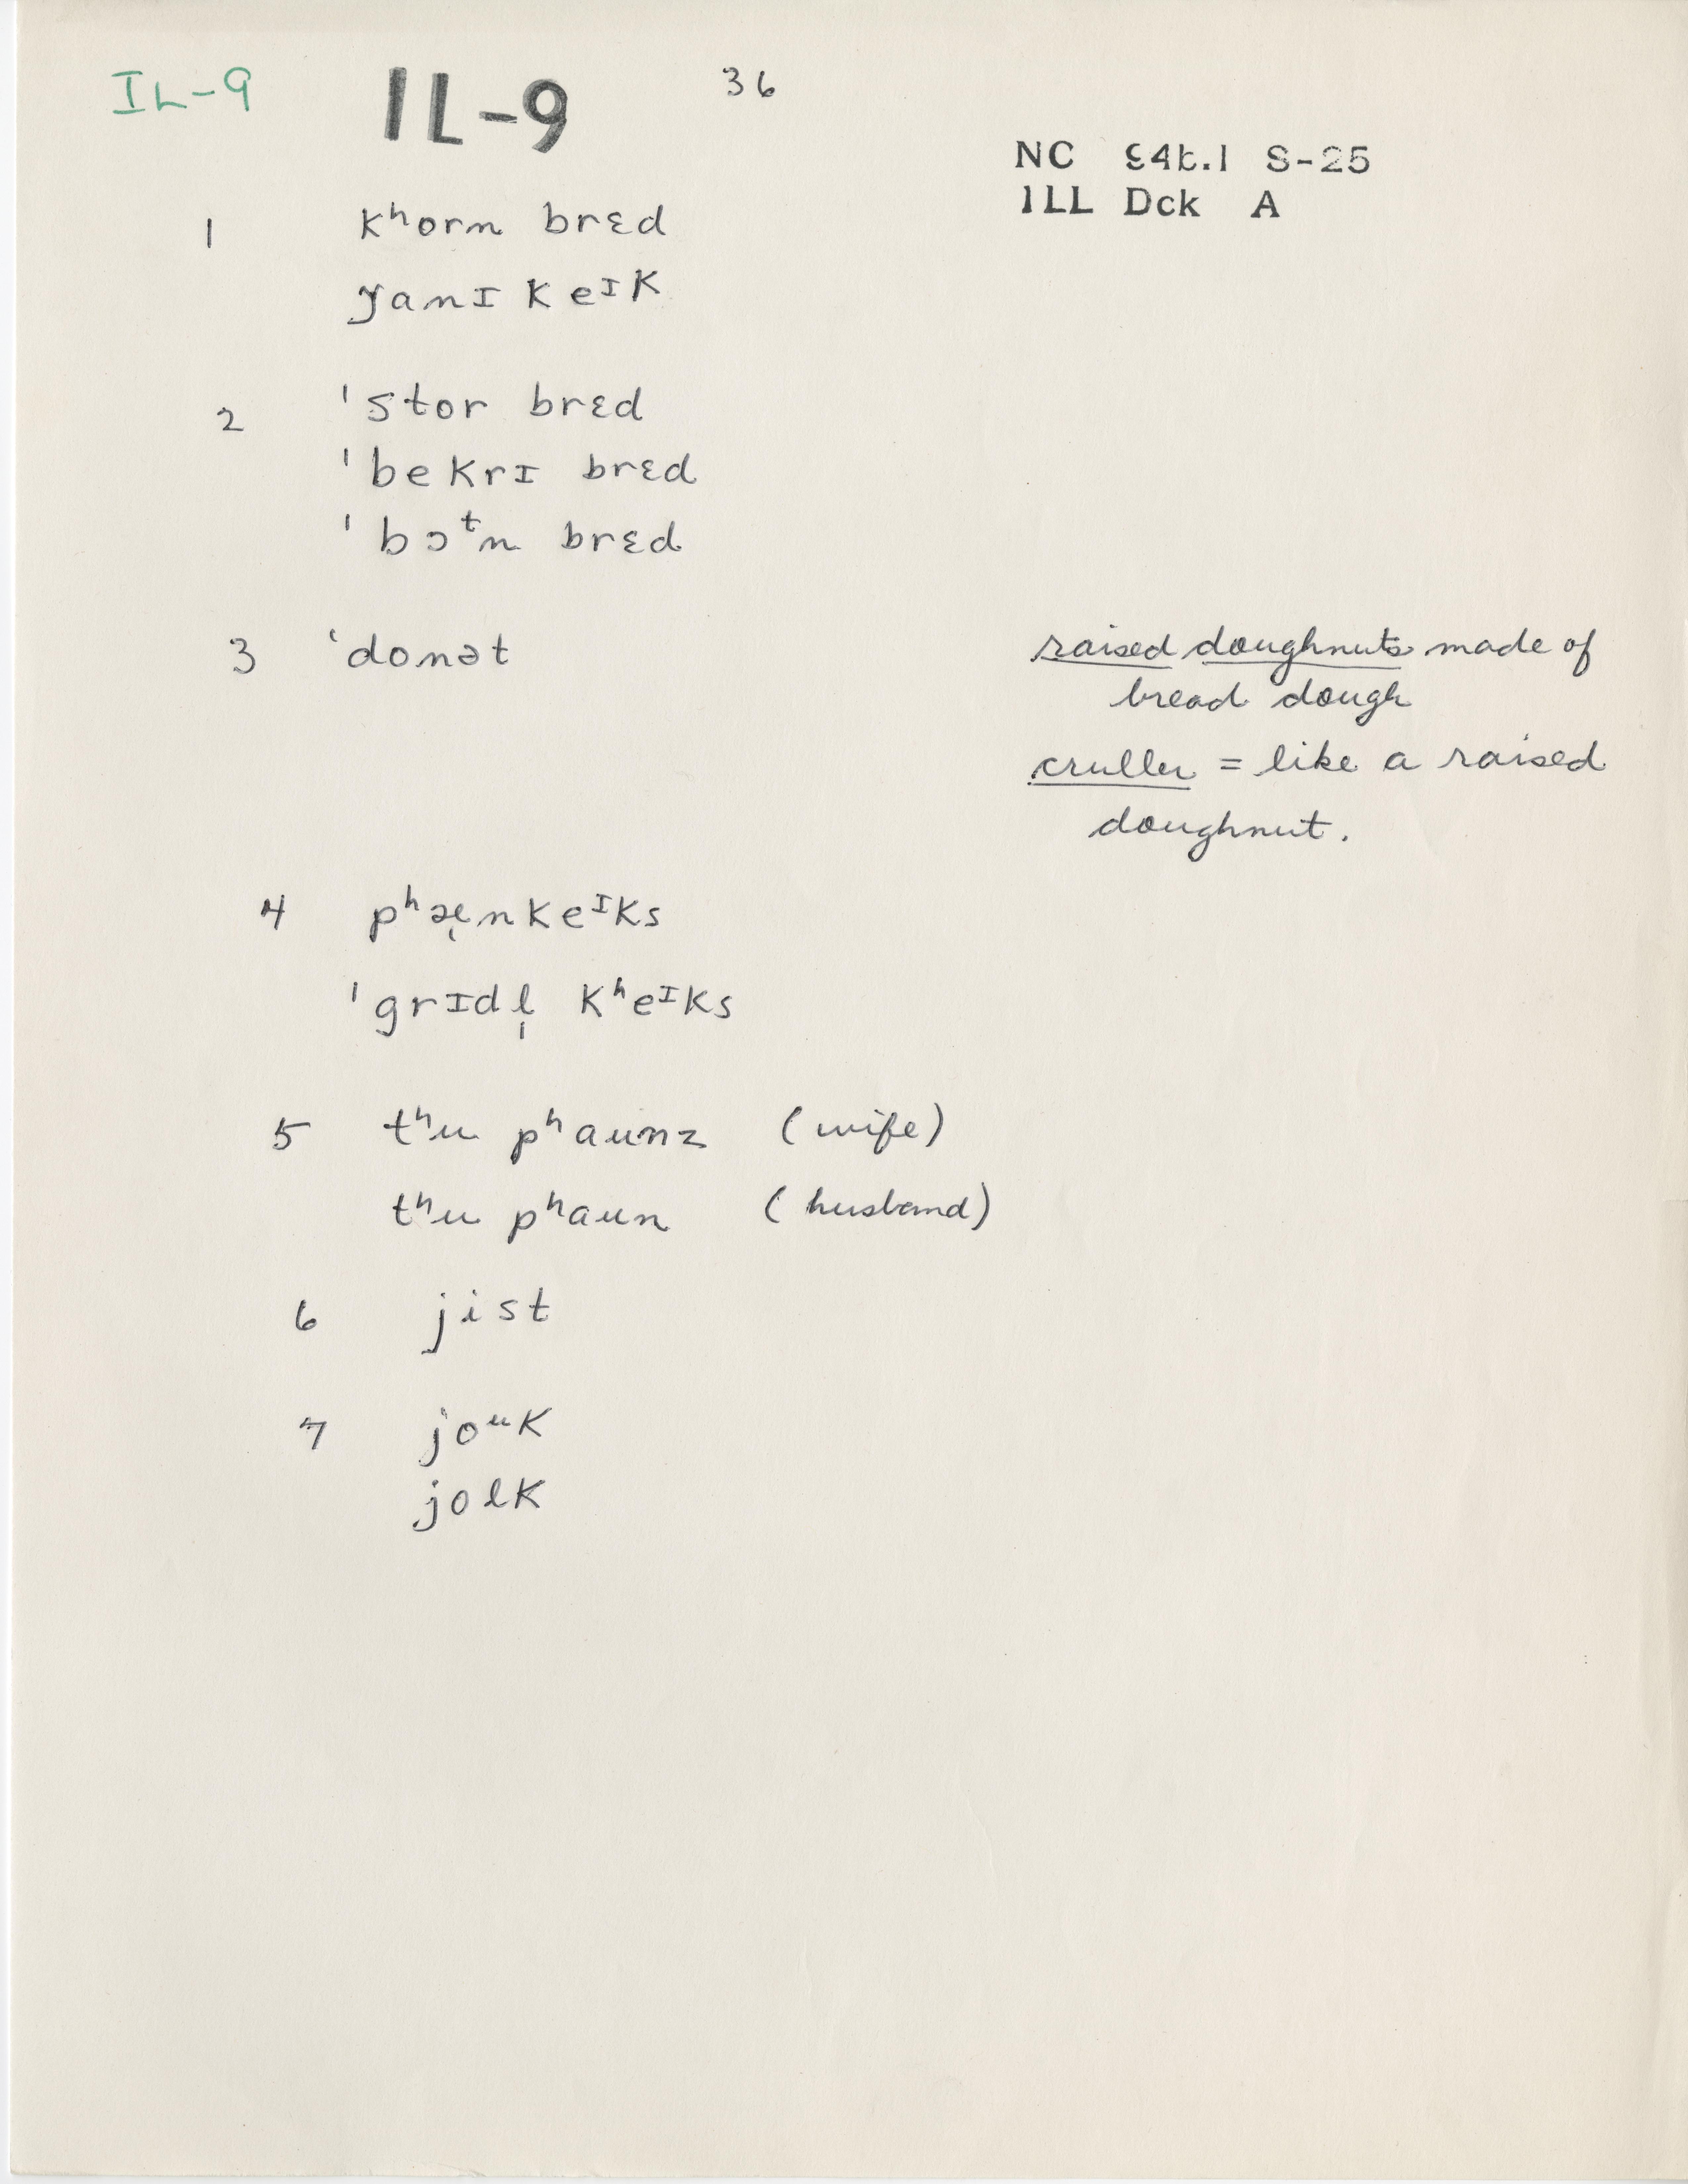 IL-9 IL-9 36
NC S-25
ILL Dck A
1 kʰorn brɛd
ɟanɪ keᴵk
2 ˈstor brɛd
ˈbekrɪ brɛd
ˈbɔᵗn brɛd
3 ˈdonət raised doughnuts made of
bread dough
cruller = like a raised
doughnut.
4 pʰæ̩nkeᴵks
ˈgrɪdl̩ kʰeᴵks
5 tʰu pʰaunz (wife)
tʰu pʰaun (husband)
6 jist
7 joᵘk
jolk